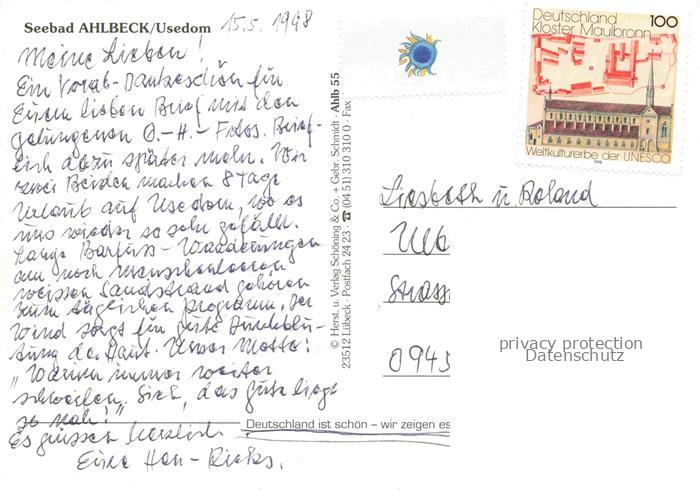 Seebad AHLBECK/Usedom 15.5. 1998
Meine Lieben!
Ein Vorab-Dankeschön für
Euren lieben Brief mit den
gelungenen O.-H.-Fotos. Brief-
lich dazu später mehr. Wir
zwei Beiden machen 8 Tage
Urlaub auf Usedom, wo es
uns wieder so sehr gefällt.
Lange Barfuss-Wanderungen
am noch menschenleeren
weissen Sandstrand gehören
zum täglichen Programm. Der
Wind sorgt für gute Durchblu-
tung der Haut. Unser Motto:
"Warum immer weiter
schweifen. Sieh, das Gute liegt
so nah!"
Es grüssen herzlich
Eure
© Herst. u. Verlag Schöning & Co. + Gebr. Schmidt · Ahlb 55
23512 Lübeck · Postfach 24 23 · ☎ (04 51) 310 310 0 · Fax
Deutschland ist schön – wir zeigen es
Deutschland 100
Kloster Maulbronn
Weltkulturerbe der UNESCO
1998
Liesbeth u. Roland
Strass
0945
privacy protection
Datenschutz